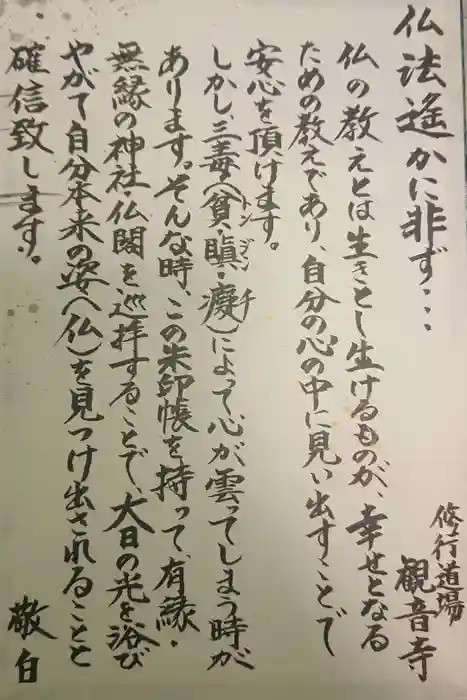 仏法遙かに非ず…
修行道場
観音寺
仏の教えとは生きとし生けるものが、幸せとなる
ための教えであり、自分の心の中に見い出すことで
安心を頂けます。
しかし、三毒(貧・瞋・癡)によって心が雲ってしまう時が
トンジンチ
あります。そんな時、この朱印帳を持って、有縁・
無縁の神社・仏閣を巡拝することで、大日の光を浴び
やがて自分本来の姿(仏)を見つけ出されることと
確信致します。
敬白